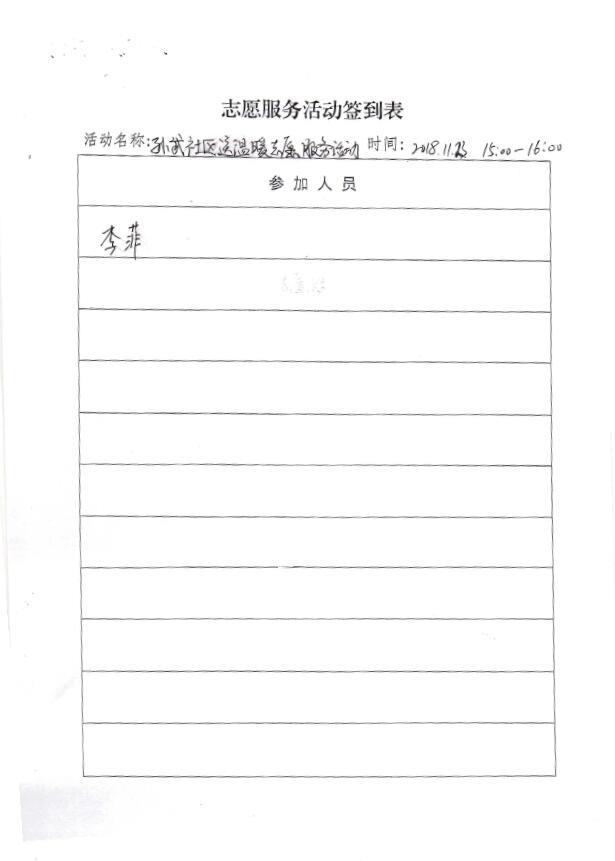 志愿服务活动签到表
活动名称:孙武社区送温暖志愿服务活动 时间: 2018.11.23 15:00-16:00
参加人员
李菲